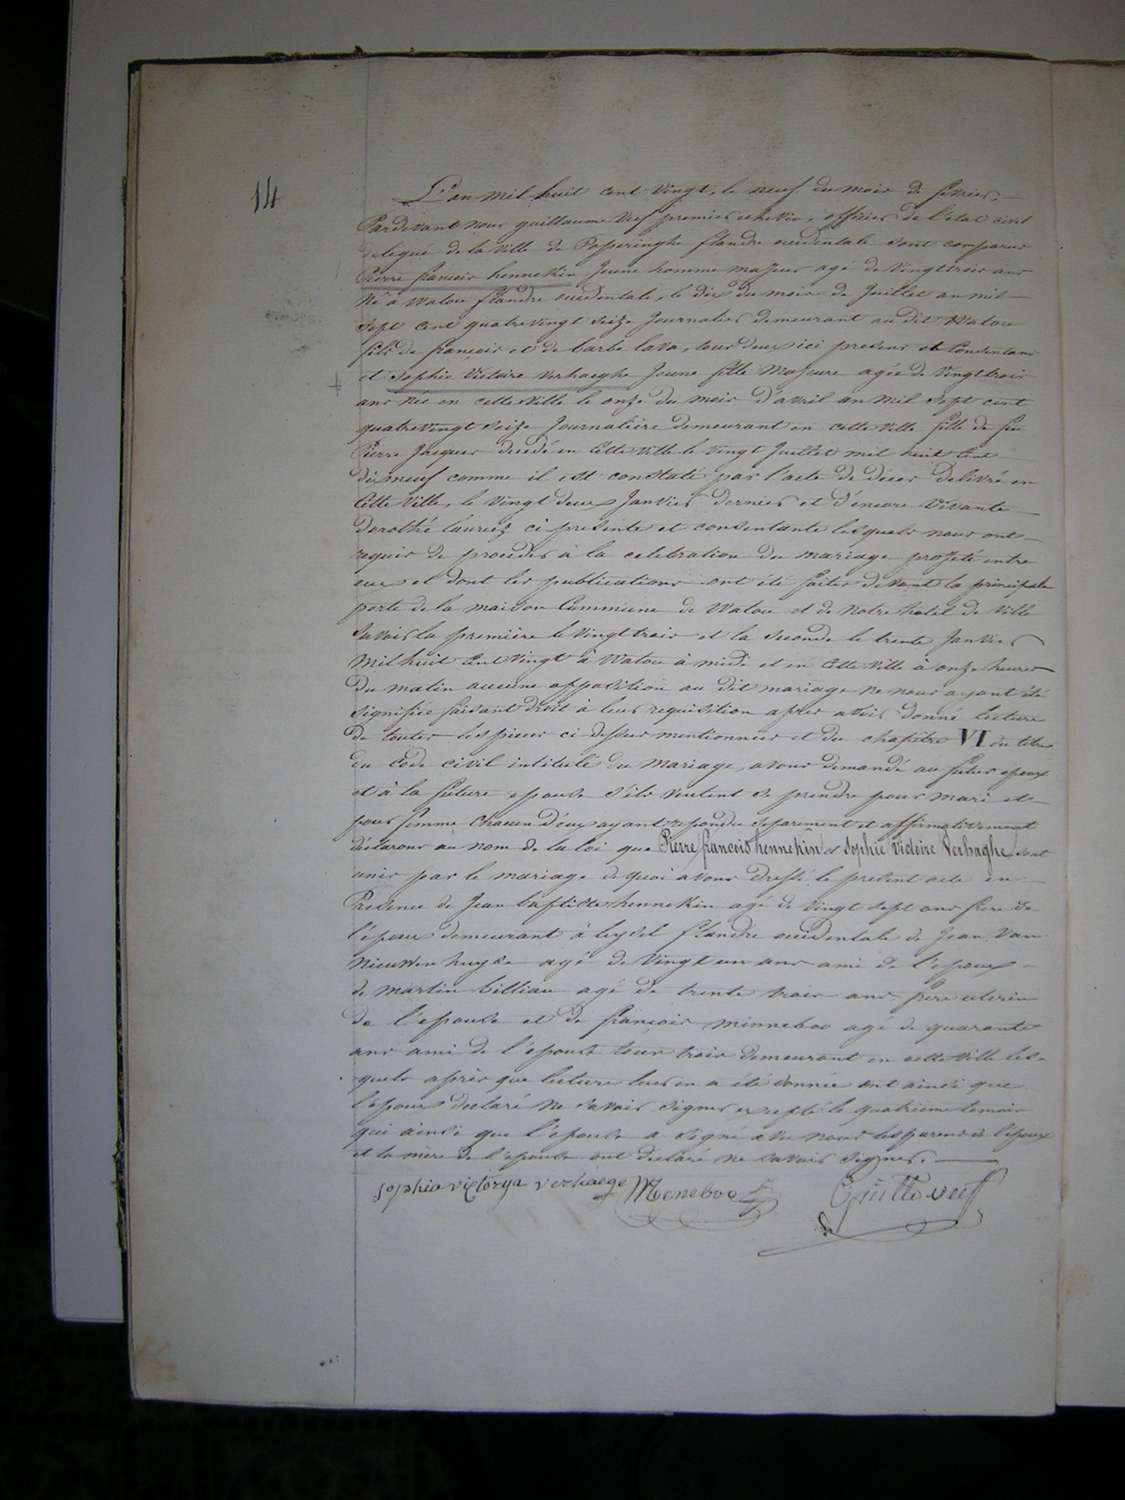 14
L'an mil huit cent vingt, le neuf du mois de fevrier,
Pardevant nous guillaume Veef premier echevin, officier de l'état civil
delegué de la Ville de Poperinghe flandre occidentale sont comparus
Pierre françois hennekin Jeune homme majeur agé de vingt trois ans
Né à Watou flandre occidentale, le dix du mois de Juillet an mil
sept cent quatre vingt seize Journalier demeurant au dit Watou
fils de françois et de barbe lava, tous deux ici presens et Consentans
et Sophie Victoire verhaeghe Jeune fille Majeure agée de Vingt trois
ans née en cette ville le onze du mois d'avril an mil sept cent
quatre vingt seize Journalière demeurant en cette ville fille de feu
Pierre Jacques decedé en Cette ville le vingt Juillet mil huit Cent
dix neuf comme il est constaté par l'acte de décès delivré en
Cette Ville, le vingt deux Janvier dernier et d'encore vivante
dorothé ci présente et consentante lesquels nous ont
requis de proceder à la celebration du mariage projeté entre
eux et dont les publications ont été faites devant la principale
porte de la maison Commune de Watou et de notre hotel de Ville
savoir la première le vingt trois et la seconde le trente Janvier
Mil huit Cent vingt à Watou à midi et en Cette ville à onze heures
du matin aucune opposition au dit mariage ne nous ayant été
signifiée faisant droit à leur requisition apres avoir donné lecture
de toutes les pieces ci dessus mentionnées et du chapitre VI du titre
du Code civil intitulé du Mariage, avons demandé au futur epoux
et à la future epouse s'ils veulent se prendre pour mari et
pour femme, Chacun d'eux ayant repondu separement et affirmativement
déclarons au nom de la loi que Pierre françois hennekin et Sophie Victoire Verhaghe sont
unis par le mariage de quoi avons dressé le present acte en
Presence de Jean baptiste hennekin agé de vingt sept ans frere de
l'epoux demeurant à flandre occidentale de Jean Van
Nieuwenhuyse agé de Vingt un ans ami de l'epoux
de martin billiau agé de trente trois ans frere uterin
de l'epouse et de françois minneboo agé de quarante
ans ami de l'epouse tous trois demeurant en cette ville les
quels après que lecture leur en a été donnée ont ainsi que
l'epoux declaré ne savoir signer excepté le quatrième temoin
qui ainsi que l'epouse a signé avec nous les parens de l'epoux
et la mère de l'epouse ont declaré ne savoir signer.
sophia victorya verhaege Meneboo Guill. Veef